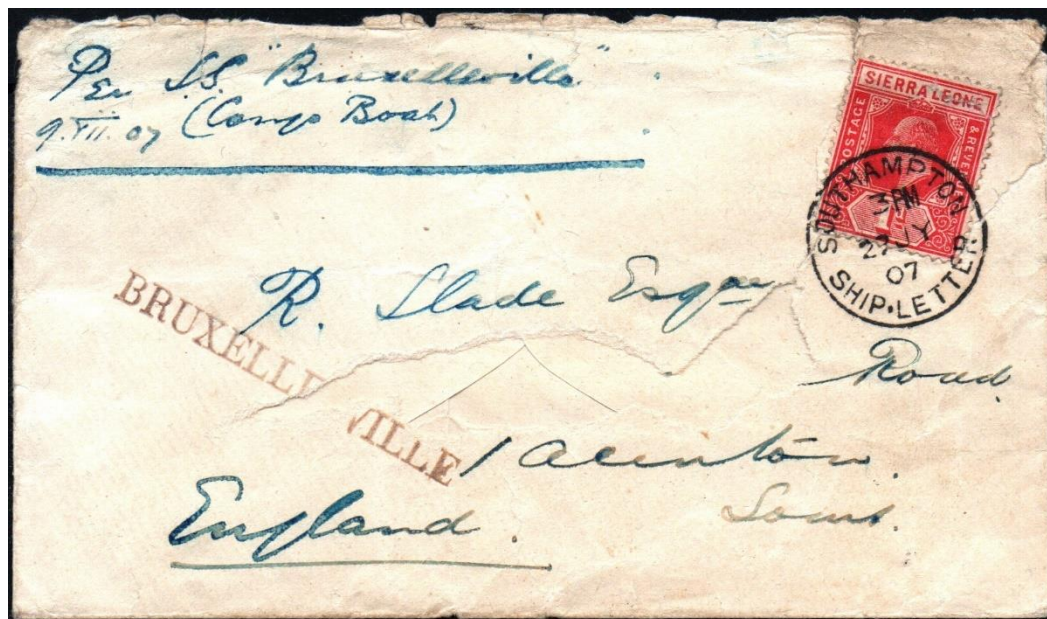 Per S.S. "Bruxellesville"
9.VII.07 (Congo Boat)
SIERRA LEONE
POSTAGE
& REVENUE
1D
SOUTHAMPTON
3 PM
27 JY
07
SHIP·LETTER
R. Slade Esqre
BRUXELLE VILLE
Road
Taunton.
Soms.
England.